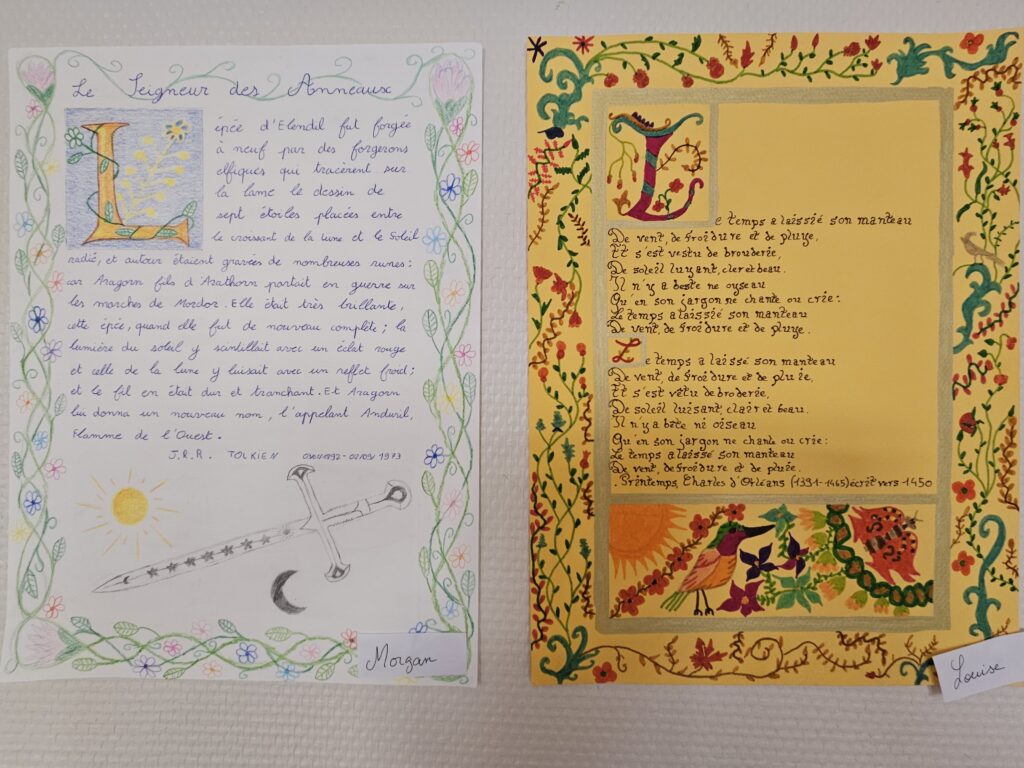 Le Seigneur des Anneaux
L
épée d'Elendil fut forgée
à neuf par des forgerons
elfiques qui tracèrent sur
la lame le dessin de
sept étoiles placées entre
le croissant de la lune et le Soleil
radié, et autour étaient gravées de nombreuses runes:
car Aragorn fils d'Arathorn partait en guerre sur
les marches de Mordor. Elle était très brillante,
cette épée, quand elle fut de nouveau complète; la
lumière du soleil y scintillait avec un éclat rouge
et celle de la lune y luisait avec un reflet froid;
et le fil en était dur et tranchant. Et Aragorn
lui donna un nouveau nom, l'appelant Anduril,
Flamme de l'Ouest.
J.R.R. TOLKIEN 1973
Morgan
L
e temps a laissié son manteau
De vent, de froidure et de pluye,
Et s'est vestu de brouderie,
De soleil luyant, cler et beau.
Il n'y a beste ne oyseau
Qu'en son jargon ne chante ou crie:
Le temps a laissié son manteau
De vent, de froidure et de pluye.
Le temps a laissé son manteau
De vent, de froidure et de pluie,
Et s'est vêtu de broderie,
De soleil luisant, clair et beau.
Il n'y a bête ni oiseau
Qu'en son jargon ne chante ou crie:
Le temps a laissé son manteau
De vent, de froidure et de pluie.
. Printemps, Charles d'Orléans (1391-1465) écrit vers 1450
Louise